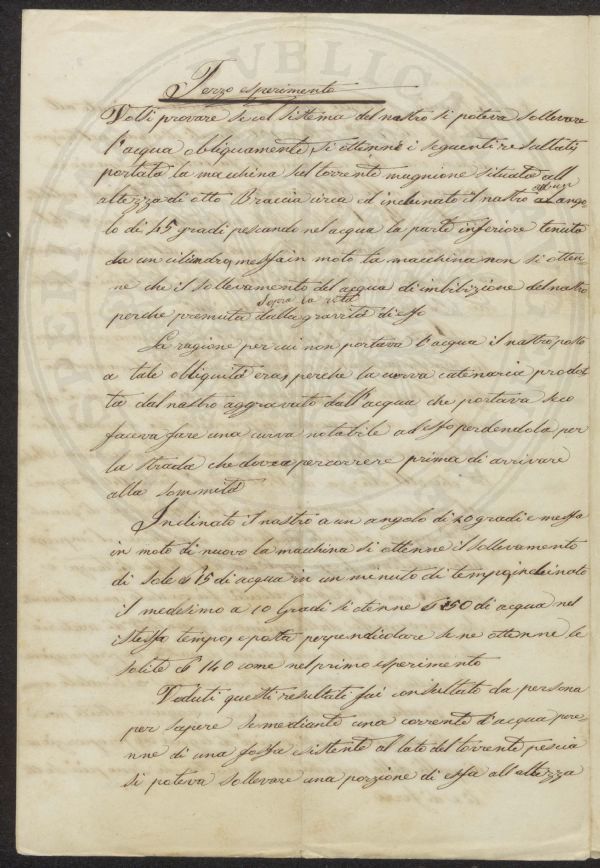 Terzo esperimento
Volsi provare se col sistema del nastro si poteva sollevare
l'acqua obliquamente, si ottenne i seguenti resultati
portata la macchina sul torrente mugnione situata all
altezza di otto Braccia circa ed inclinato il nastro ad un ango
lo di 45 gradi pescando nel acqua la parte inferiore tenuta
da un cilindro, messa in moto la macchina non si otten-
ne che il sollevamento del acqua di imbibizione del nastro
perche premuta dalla gravità di esso
sopra la
La ragione per cui non portava l'acqua il nastro, posto
a tale obliquità era, perche la curva catenaria prodot-
ta dal nastro aggravato dall'acqua che portava seco
faceva fare una curva notabile ad esso perdendola per
la strada che dovea percorrere prima di arrivare
alla sommità
Inclinato il nastro a un angolo di 20 gradi e messa
in moto di nuovo la macchina si ottenne il sollevamento
di sole 15 di acqua in un minuto di tempo, inclinato
il medesimo a 10 Gradi si otenne 50 di acqua nel
istesso tempo, e posta perpendicolare se ne ottenne le
solite 140 come nel primo esperimento
Veduti questi resultati fui consultato da persona
per sapere se mediante una corrente d'acqua pere-
nne di una fossa esistente al lato del torrente pescia
si poteva sollevare una porzione di essa all altezza